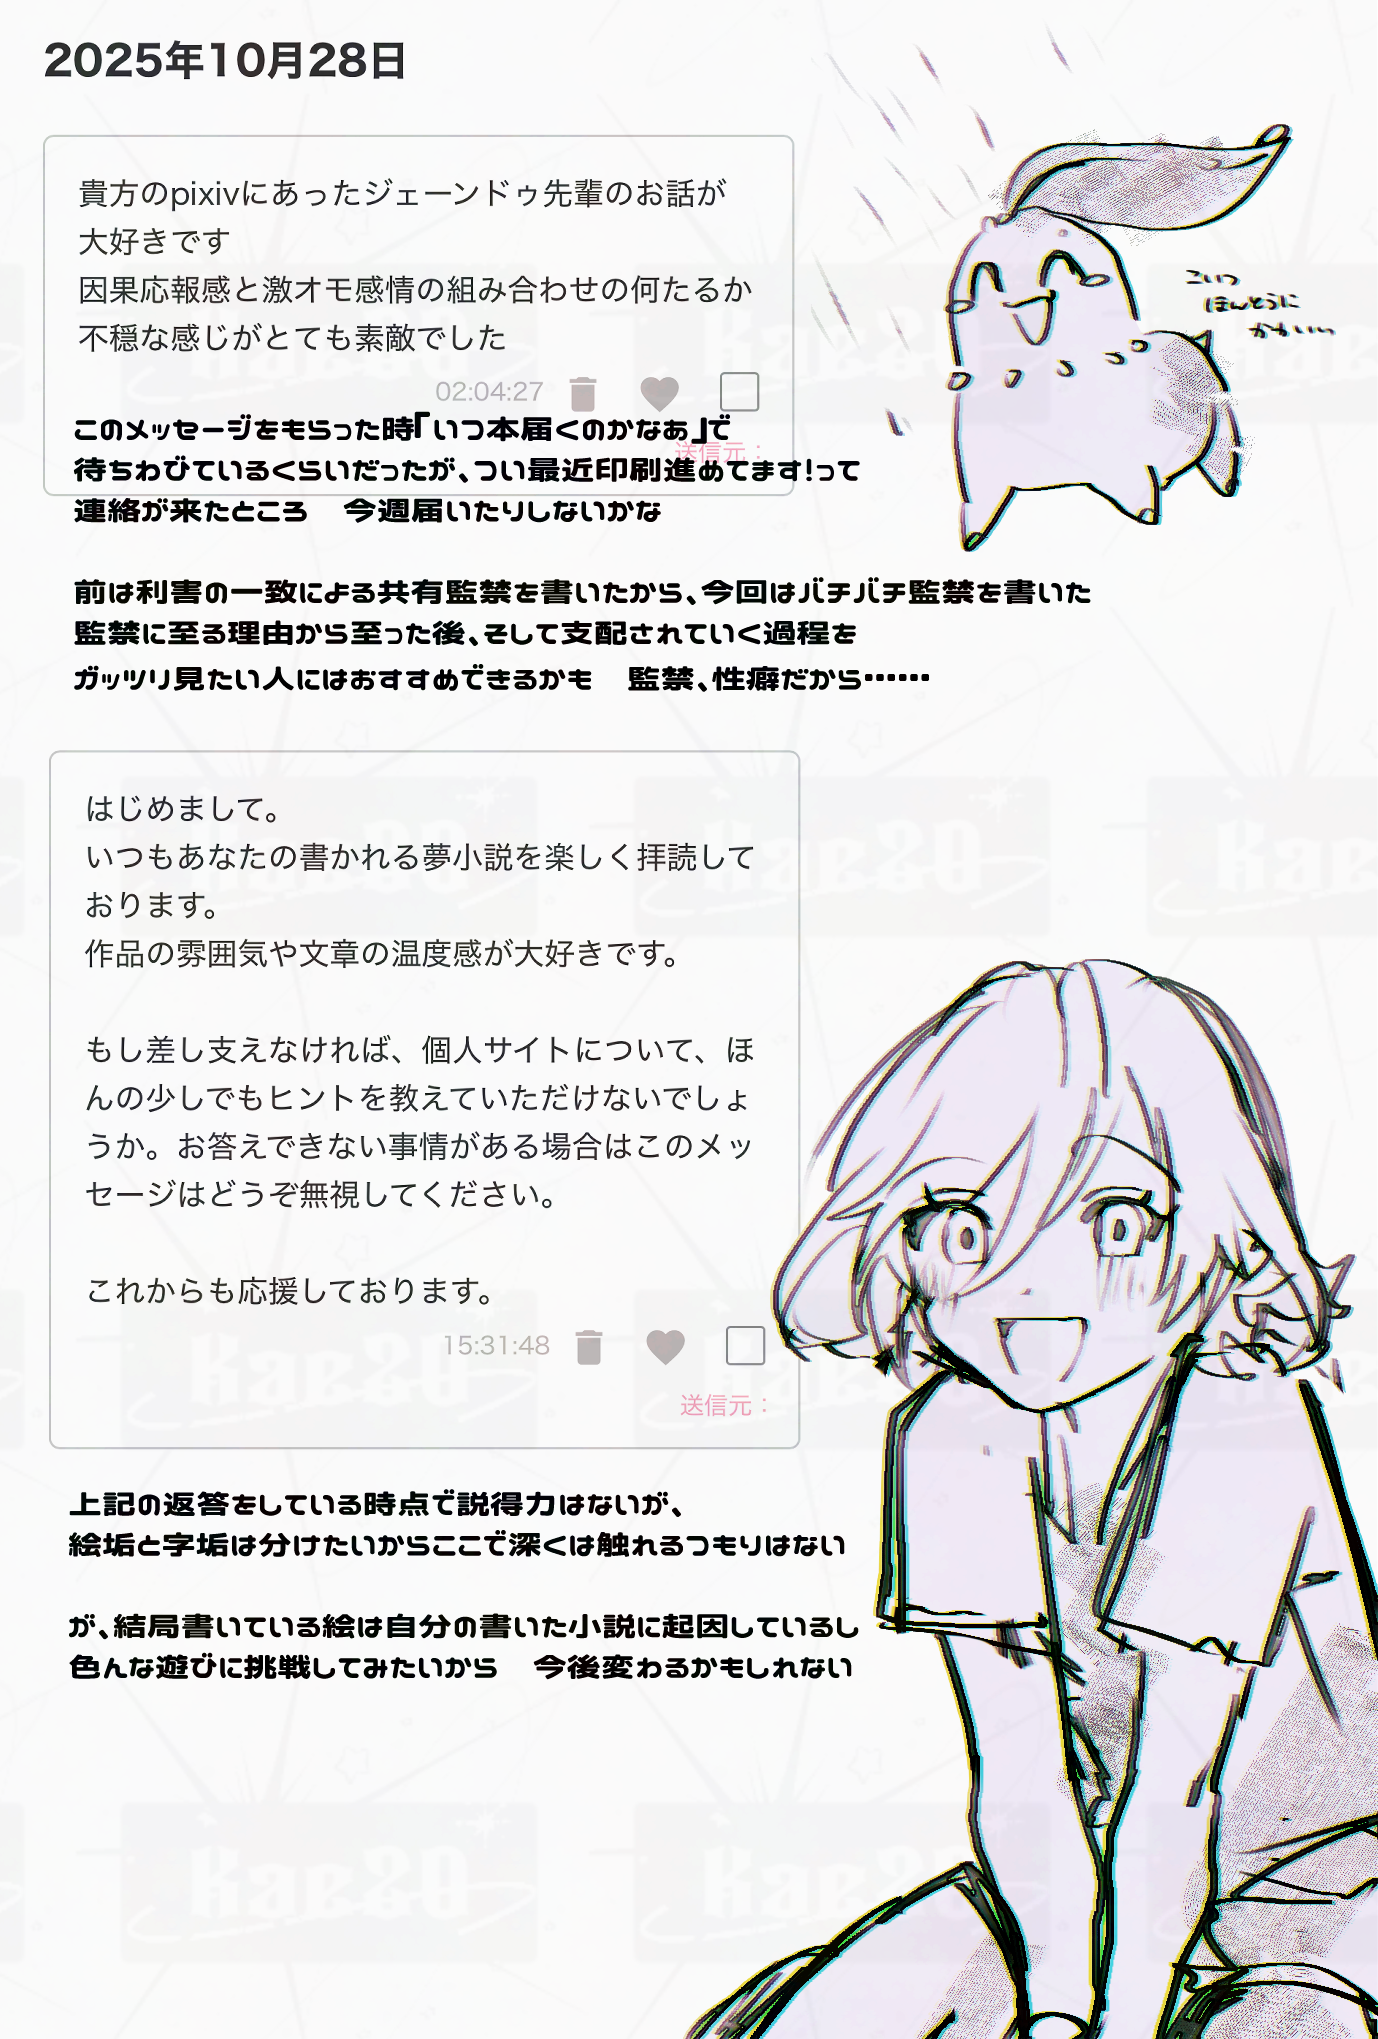 2025年10月28日
貴方のpixivにあったジェーンドゥ先輩のお話が
大好きです
因果応報感と激オモ感情の組み合わせの何たるか
不穏な感じがとても素敵でした
02:04:27
送信元：
このメッセージをもらった時｢いつ本届くのかなぁ｣で
待ちわびているくらいだったが､つい最近印刷進めてます!って
連絡が来たところ　今週届いたりしないかな
こいつ
ほんとうに
かわいい
前は利害の一致による共有監禁を書いたから､今回はバチバチ監禁を書いた
監禁に至る理由から至った後､そして支配されていく過程を
ガッツリ見たい人にはおすすめできるかも　監禁､性癖だから……
はじめまして。
いつもあなたの書かれる夢小説を楽しく拝読して
おります。
作品の雰囲気や文章の温度感が大好きです。
もし差し支えなければ、個人サイトについて、ほ
んの少しでもヒントを教えていただけないでしょ
うか。お答えできない事情がある場合はこのメッ
セージはどうぞ無視してください。
これからも応援しております。
15:31:48
送信元：
上記の返答をしている時点で説得力はないが､
絵垢と字垢は分けたいからここで深くは触れるつもりはない
が､結局書いている絵は自分の書いた小説に起因しているし
色んな遊びに挑戦してみたいから　今後変わるかもしれない
Kae20